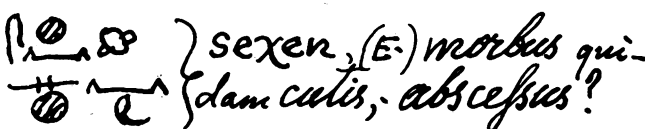 sexen, (E.) morbus qui-
dam cutis, absceſsus?